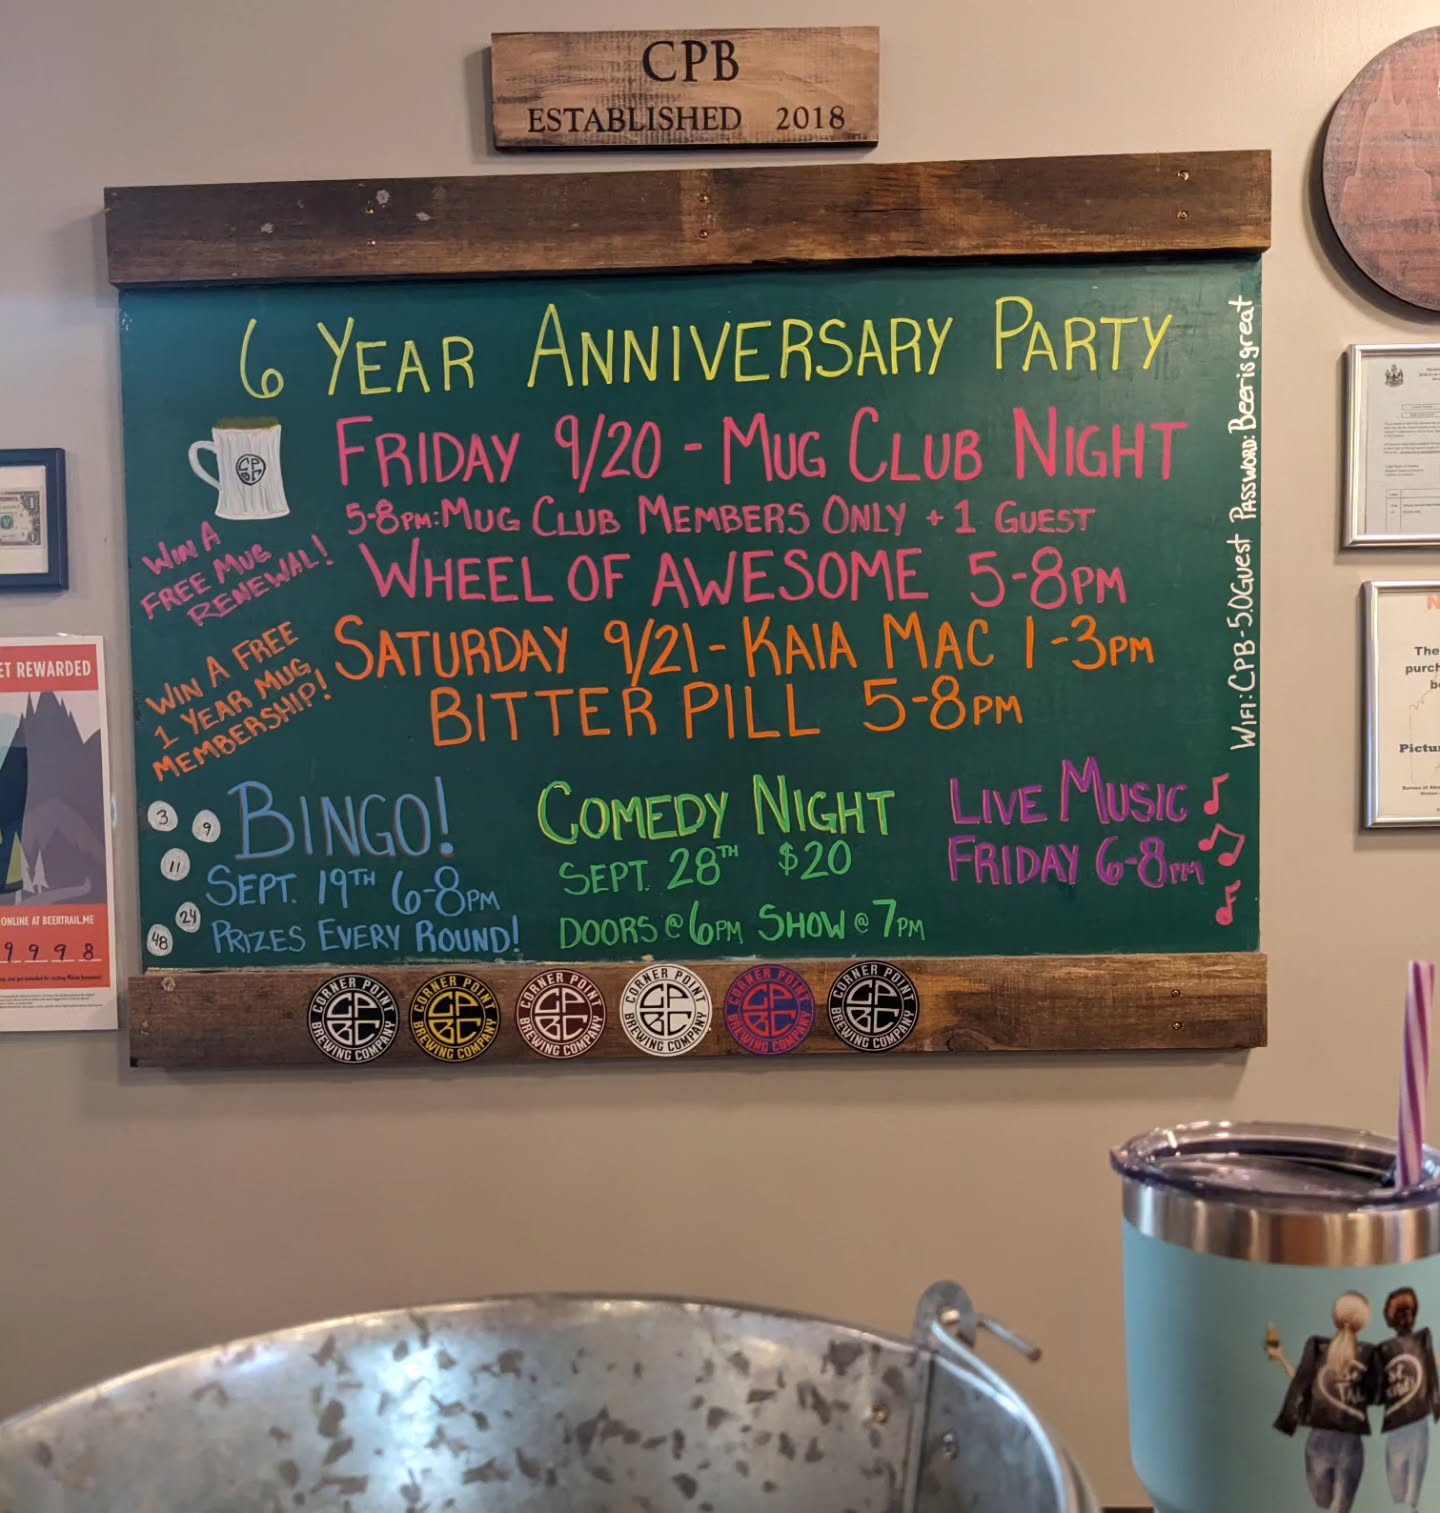 CPB
ESTABLISHED 2018
6 YEAR ANNIVERSARY PARTY
FRIDAY 9/20 - MUG CLUB NIGHT
5-8PM: MUG CLUB MEMBERS ONLY + 1 GUEST
WHEEL OF AWESOME 5-8PM
WIN A
FREE MUG
RENEWAL!
SATURDAY 9/21 - KAIA MAC 1-3PM
BITTER PILL 5-8PM
WIN A FREE
1 YEAR MUG
MEMBERSHIP!
WIFI: CPB-5.0Guest PASSWORD: Beerisgreat
BINGO!
SEPT. 19TH 6-8PM
PRIZES EVERY ROUND!
3
9
11
24
48
COMEDY NIGHT
SEPT. 28TH $20
DOORS @ 6PM SHOW @ 7PM
LIVE MUSIC
FRIDAY 6-8PM
CORNER POINT
CPBC
BREWING COMPANY
CORNER POINT
CPBC
BREWING COMPANY
CORNER POINT
CPBC
BREWING COMPANY
CORNER POINT
CPBC
BREWING COMPANY
CORNER POINT
CPBC
BREWING COMPANY
CORNER POINT
CPBC
BREWING COMPANY
ET REWARDED
ONLINE AT BEERTRAIL.ME
9 9 9 8
The
purch
b
Pictu